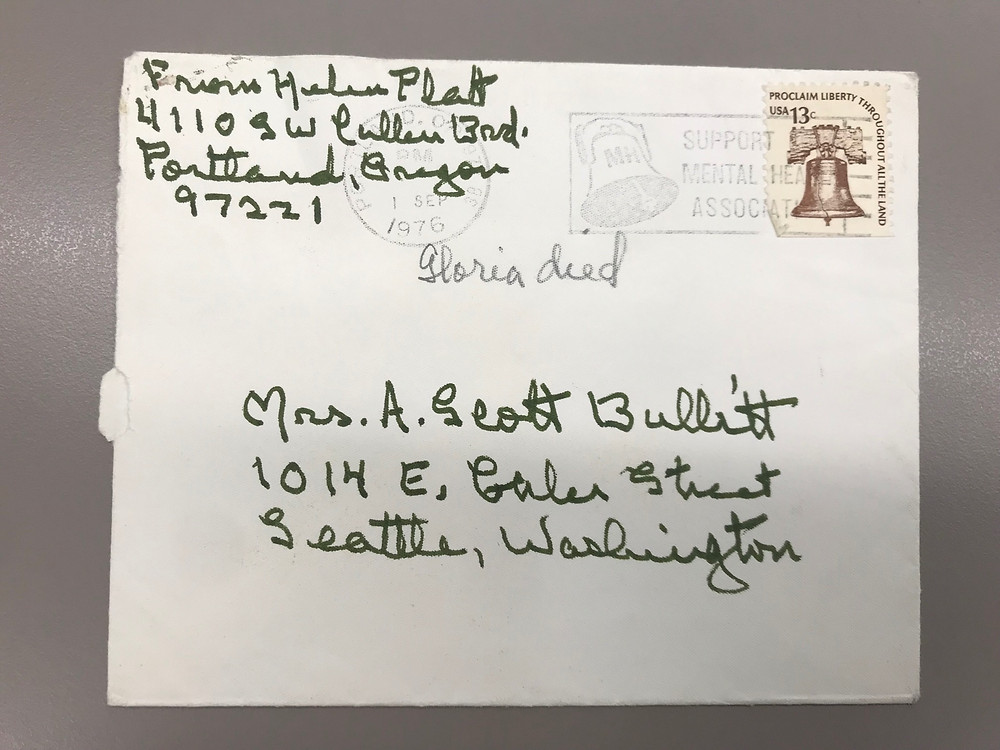 From Helen Platt
4110 SW Cullen Blvd.
Portland, Oregon
97221
PORTLAND, O
PM
1 SEP
1976
MH
SUPPORT
MENTAL HEA
ASSOCIAT
PROCLAIM LIBERTY THROUGHOUT ALL THE LAND
USA 13c
Gloria died
Mrs. A. Scott Bullitt
1014 E. Galer Street
Seattle, Washington